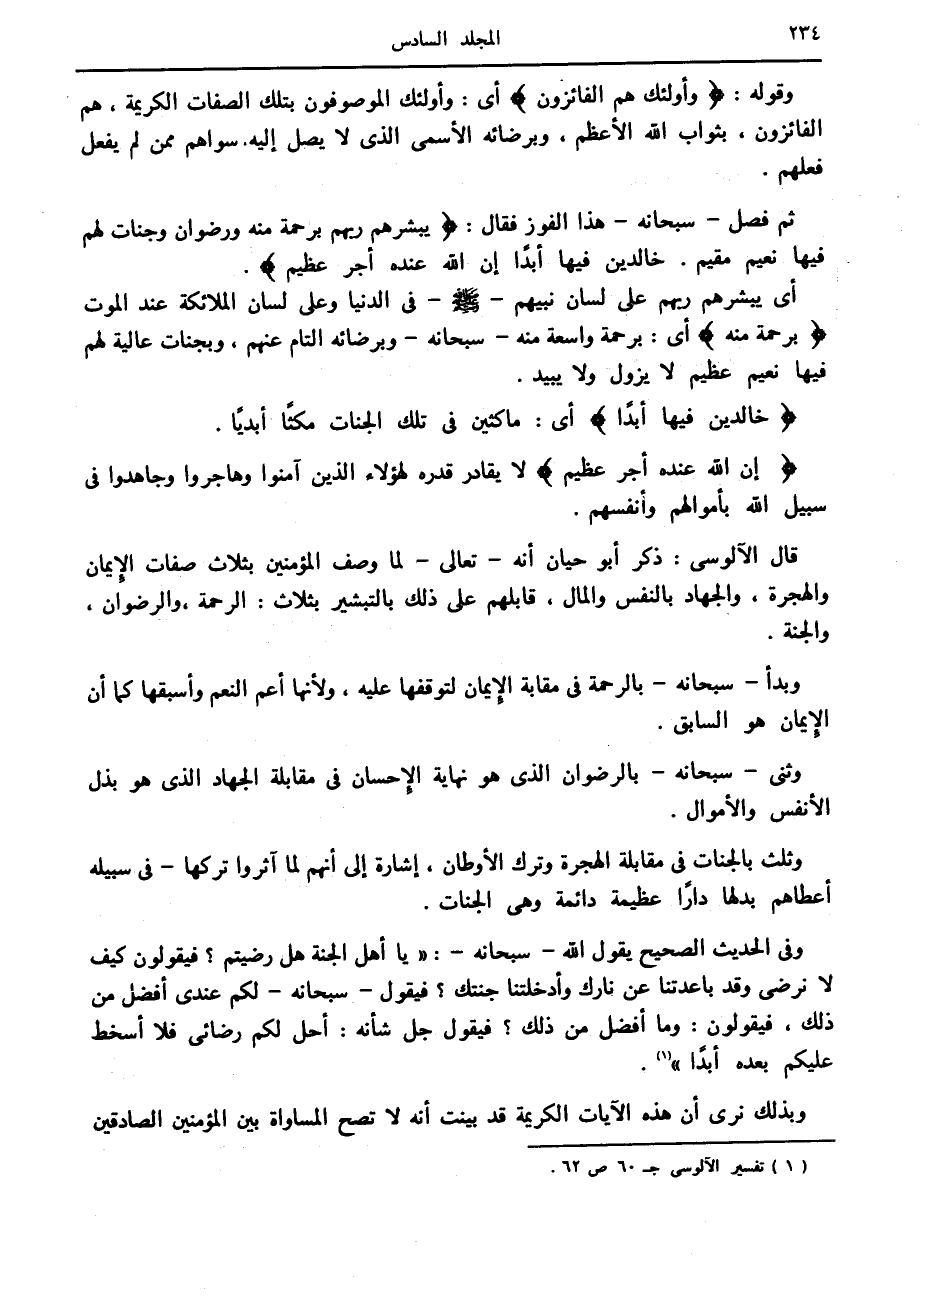 ٢٣٤
المجلد السادس
وقوله : ﴿ وأولئك هم الفائزون ﴾ أى : وأولئك الموصوفون بتلك الصفات الكريمة ، هم
الفائزون ، بثواب الله الأعظم ، وبرضائه الأسمى الذى لا يصل إليه. سواهم ممن لم يفعل
فعلهم .
ثم فصل – سبحانه – هذا الفوز فقال : ﴿ يبشرهم ربهم برحمة منه ورضوان وجنات لهم
فيها نعيم مقيم . خالدين فيها أبدًا إن الله عنده أجر عظيم ﴾ .
أى يبشرهم ربهم على لسان نبيهم – ﷺ – فى الدنيا وعلى لسان الملائكة عند الموت
﴿ برحمة منه ﴾ أى : برحمة واسعة منه – سبحانه – وبرضائه التام عنهم ، وبجنات عالية لهم
فيها نعيم عظيم لا يزول ولا يبيد .
﴿ خالدين فيها أبدًا ﴾ أى : ماكثين فى تلك الجنات مكثًا أبديًا .
﴿ إن الله عنده أجر عظيم ﴾ لا يقادر قدره لهؤلاء الذين آمنوا وهاجروا وجاهدوا فى
سبيل الله بأموالهم وأنفسهم .
قال الآلوسى : ذكر أبو حيان أنه – تعالى – لما وصف المؤمنين بثلاث صفات الإيمان
والهجرة ، والجهاد بالنفس والمال ، قابلهم على ذلك بالتبشير بثلاث : الرحمة ،والرضوان ،
والجنة .
وبدأ – سبحانه – بالرحمة فى مقابة الإيمان لتوقفها عليه ، ولأنها أعم النعم وأسبقها كما أن
الإيمان هو السابق .
وثنى – سبحانه – بالرضوان الذى هو نهاية الإحسان فى مقابلة الجهاد الذى هو بذل
الأنفس والأموال .
وثلث بالجنات فى مقابلة الهجرة وترك الأوطان ، إشارة إلى أنهم لما آثروا تركها – فى سبيله
أعطاهم بدلها دارًا عظيمة دائمة وهى الجنات .
وفى الحديث الصحيح يقول الله – سبحانه – : « يا أهل الجنة هل رضيتم ؟ فيقولون كيف
لا نرضى وقد باعدتنا عن نارك وأدخلتنا جنتك ؟ فيقول – سبحانه – لكم عندى أفضل من
ذلك ، فيقولون : وما أفضل من ذلك ؟ فيقول جل شأنه : أحل لكم رضائى فلا أسخط
عليكم بعده أبدًا »(١) .
وبذلك نرى أن هذه الآيات الكريمة قد بينت أنه لا تصح المساواة بين المؤمنين الصادقين
( ١ ) تفسير الآلوسى جـ ٦٠ ص ٦٢ .